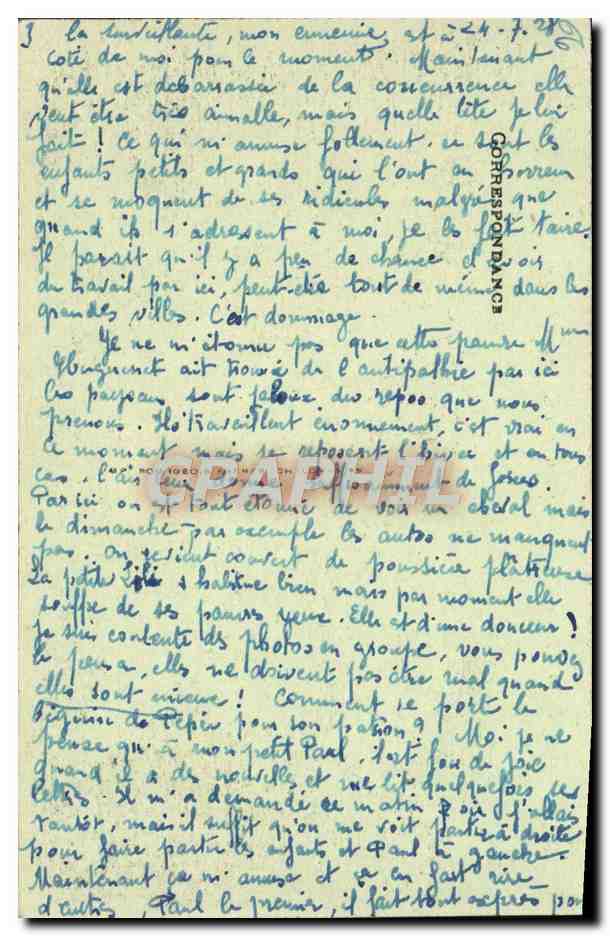 3 la surveillante, mon ennemie, est à 24-7.28
coté de moi pour le moment. Maintenant
qu'elle est débarrassée de la concurrence elle
veut être très aimable, mais quelle tête je lui
fait! Ce qui m'amuse follement ce sont les
enfants petits et grands qui l'ont en horreur
et se moquent de ses ridicules malgré que
quand ils s'adressent à moi, je les fait taire.
Il parait qu'il y a peu de chance d'avoir
du travail par ici, peut-être tout de même dans les
grandes villes. C'est dommage.
Je ne m'étonne pas que cette pauvre Mme
Huguenet ait trouvé de l'antipathie par ici
les paysans sont jaloux du repos que nous
prenons. Ils travaillent énormément, c'est vrai en
ce moment mais se reposent l'hiver et en tous
cas, l'air leur donne de forces.
Par ici on est tout étonné de voir un cheval mais
le dimanche par exemple les autos ne manquent
pas. On revient couvert de poussière plâtreuse
La petite Lili s'habitue bien mais par moment elle
souffre de ses pauvres yeux. Elle est d'une douceur!
je suis contente des photos en groupe, vous pouvez
le penser, elles ne doivent pas être mal quand
elles sont mieux! Comment se porte le
béguin de Pépée pour son patron? Moi je ne
pense qu'à mon petit Paul, fou de joie
quand il a des nouvelles et me lit quelquefois ses
lettres. Il m'a demandé ce matin où j'allais
tantôt, mais il suffit qu'on me voit partir à droite
pour faire partir les enfants et Paul à gauche.
Maintenant ça m'amuse et ça en fait rire
d'autres, Paul le premier, il fait tout exprès pour
CORRESPONDANCE
CPAPHIL